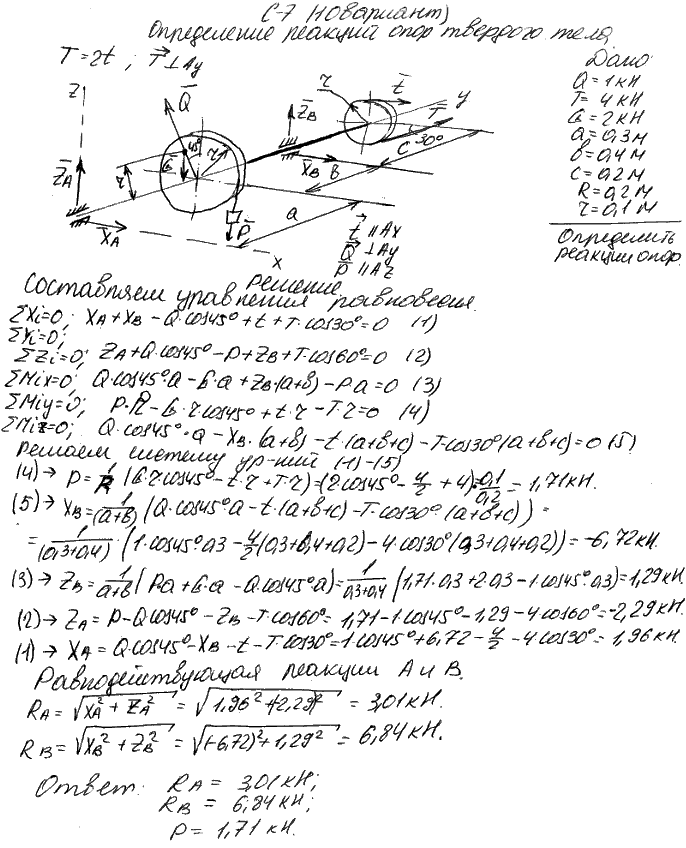 С-7 (10 вариант)
Определение реакций опор твердого тела
T = 2t ; T̅ ⊥ Ay
Дано:
Q = 1 кН
T = 4 кН
G = 2 кН
a = 0,3 м
b = 0,4 м
c = 0,2 м
R = 0,2 м
r = 0,1 м
Определить
реакции опор.
z
Q̅
45°
r
G̅
r
Z̅A
X̅A
P̅
x
a
Z̅B
X̅B
b
c
r
t̅
T̅
30°
y
t̅ ∥ Ax
Q̅ ⊥ Ay
P̅ ∥ Az
Решение
Составляем уравнения равновесия.
ΣXi=0; XA + XB − Q·cos45° + t + T·cos30° = 0 (1)
ΣYi=0;
ΣZi=0; ZA + Q·cos45° − P + ZB + T·cos60° = 0 (2)
ΣMix=0; Q·cos45°·a − G·a + ZB·(a+b) − P·a = 0 (3)
ΣMiy=0; P·R − G·r·cos45° + t·r − T·r = 0 (4)
ΣMiz=0; Q·cos45°·a − XB·(a+b) − t·(a+b+c) − T·cos30°(a+b+c) = 0 (5)
Решаем систему ур-ний (1)-(5)
(4) → P = 1/R (G·r·cos45° − t·r + T·r) = (2·cos45° − 4/2 + 4)·0,1/0,2 = 1,71 кН.
(5) → XB = 1/(a+b) (Q·cos45°·a − t·(a+b+c) − T·cos30°·(a+b+c)) =
= 1/(0,3+0,4) · (1·cos45°·0,3 − 4/2(0,3+0,4+0,2) − 4·cos30°(0,3+0,4+0,2)) = −6,72 кН.
(3) → ZB = 1/(a+b) (P·a + G·a − Q·cos45°·a) = 1/(0,3+0,4) (1,71·0,3 + 2·0,3 − 1·cos45°·0,3) = 1,29 кН
(2) → ZA = P − Q·cos45° − ZB − T·cos60° = 1,71 − 1·cos45° − 1,29 − 4·cos60° = −2,29 кН.
(1) → XA = Q·cos45° − XB − t − T·cos30° = 1·cos45° + 6,72 − 4/2 − 4·cos30° = 1,96 кН
Равнодействующая реакции A и B.
RA = √(XA² + ZA²) = √(1,96² + (−2,29)²) = 3,01 кН.
RB = √(XB² + ZB²) = √((−6,72)² + 1,29²) = 6,84 кН.
Ответ: RA = 3,01 кН;
RB = 6,84 кН;
P = 1,71 кН.